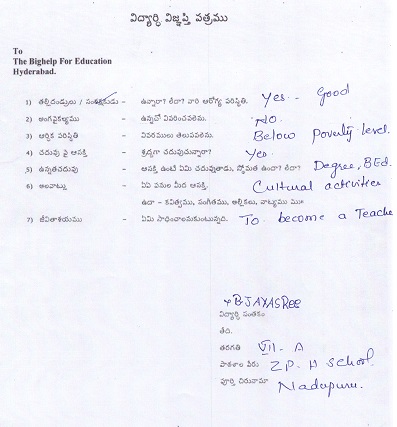 విద్యార్థి విజ్ఞప్తి పత్రము
To
The Bighelp For Education
Hyderabad.
1) తల్లిదండ్రులు / సంరక్షకుడు – ఉన్నారా? లేదా? వారి ఆరోగ్య పరిస్థితి. Yes - Good
2) అంగవైకల్యము – ఉన్నచో వివరించవలెను. NO.
3) ఆర్థిక పరిస్థితి – వివరములు తెలుపవలెను. Below Poverty level.
4) చదువు పై ఆసక్తి – శ్రద్ధగా చదువుచున్నారా? Yes
5) ఉన్నతచదువు – ఆసక్తి ఉంటే ఏమి చదువుతాడు, స్తోమత ఉందా? లేదా? Degree, BEd.
6) అలవాట్లు – ఏఏ పనుల మీద ఆసక్తి. Cultural activities
ఉదా – కవిత్వము, సంగీతము, అల్లికలు, నాట్యము
7) జీవితాశయము – ఏమి సాధించాలనుకుంటున్నది. To become a Teache
B JAYASREE
విద్యార్థి సంతకం
తేది.
తరగతి VII - A
పాఠశాల పేరు Z.P. H School.
పూర్తి చిరునామా Nadupuru.